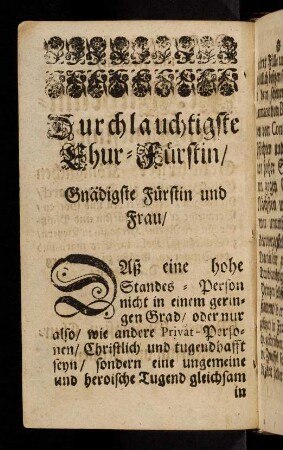 Durchlauchtigste
Chur-Fürstin/
Gnädigste Fürstin und
Frau/
Daß eine hohe
Standes-Person
nicht in einem gerin-
gen Grad/ oder nur
also/ wie andere Privat-Perso-
nen/ Christlich und tugendhafft
seyn/ sondern eine ungemeine
und heroische Tugend gleichsam
in